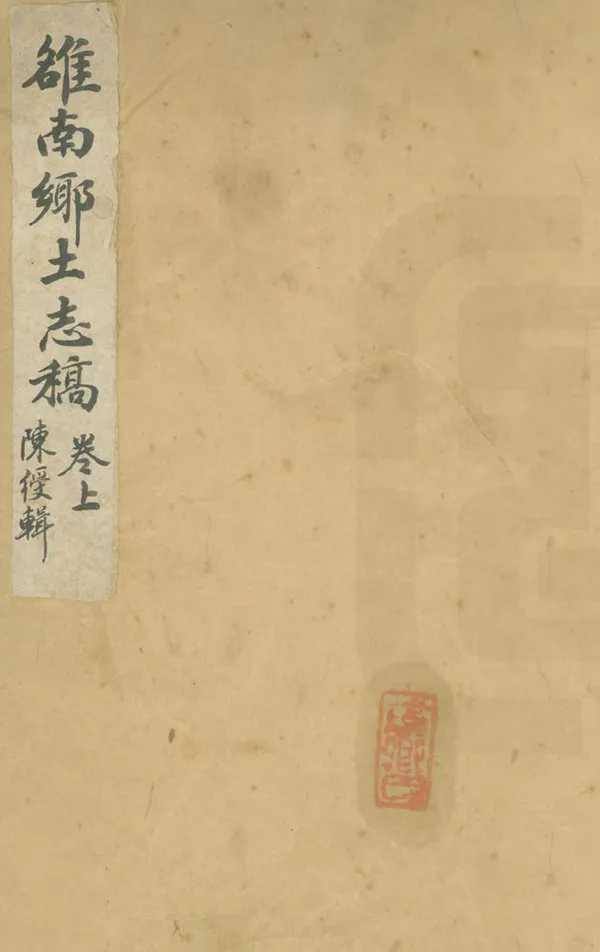 雒南鄉土志稿
卷上
陳綬輯